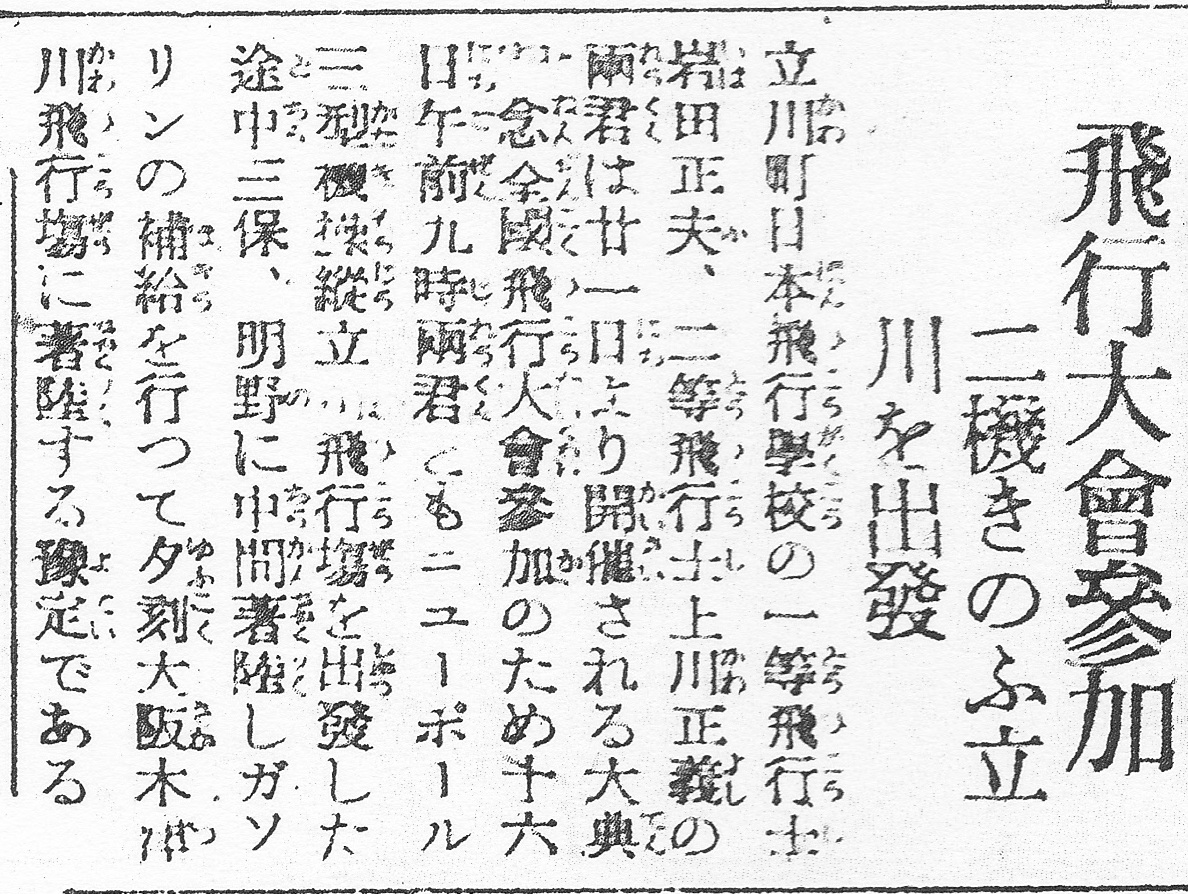 飛行大會參加
二機きのふ立
川を出發
立川町日本飛行學校の一等飛行士
岩田正夫、二等飛行士上川正義の
兩君は廿一日より開催される大典
念全國飛行大會參加のため十六
日午前九時兩君ともニユーポール
三型機操縱立川飛行塲を出發した
途中三保、明野に中間著陸しガソ
リンの補給を行つて夕刻大阪木津
川飛行塲に著陸する豫定である